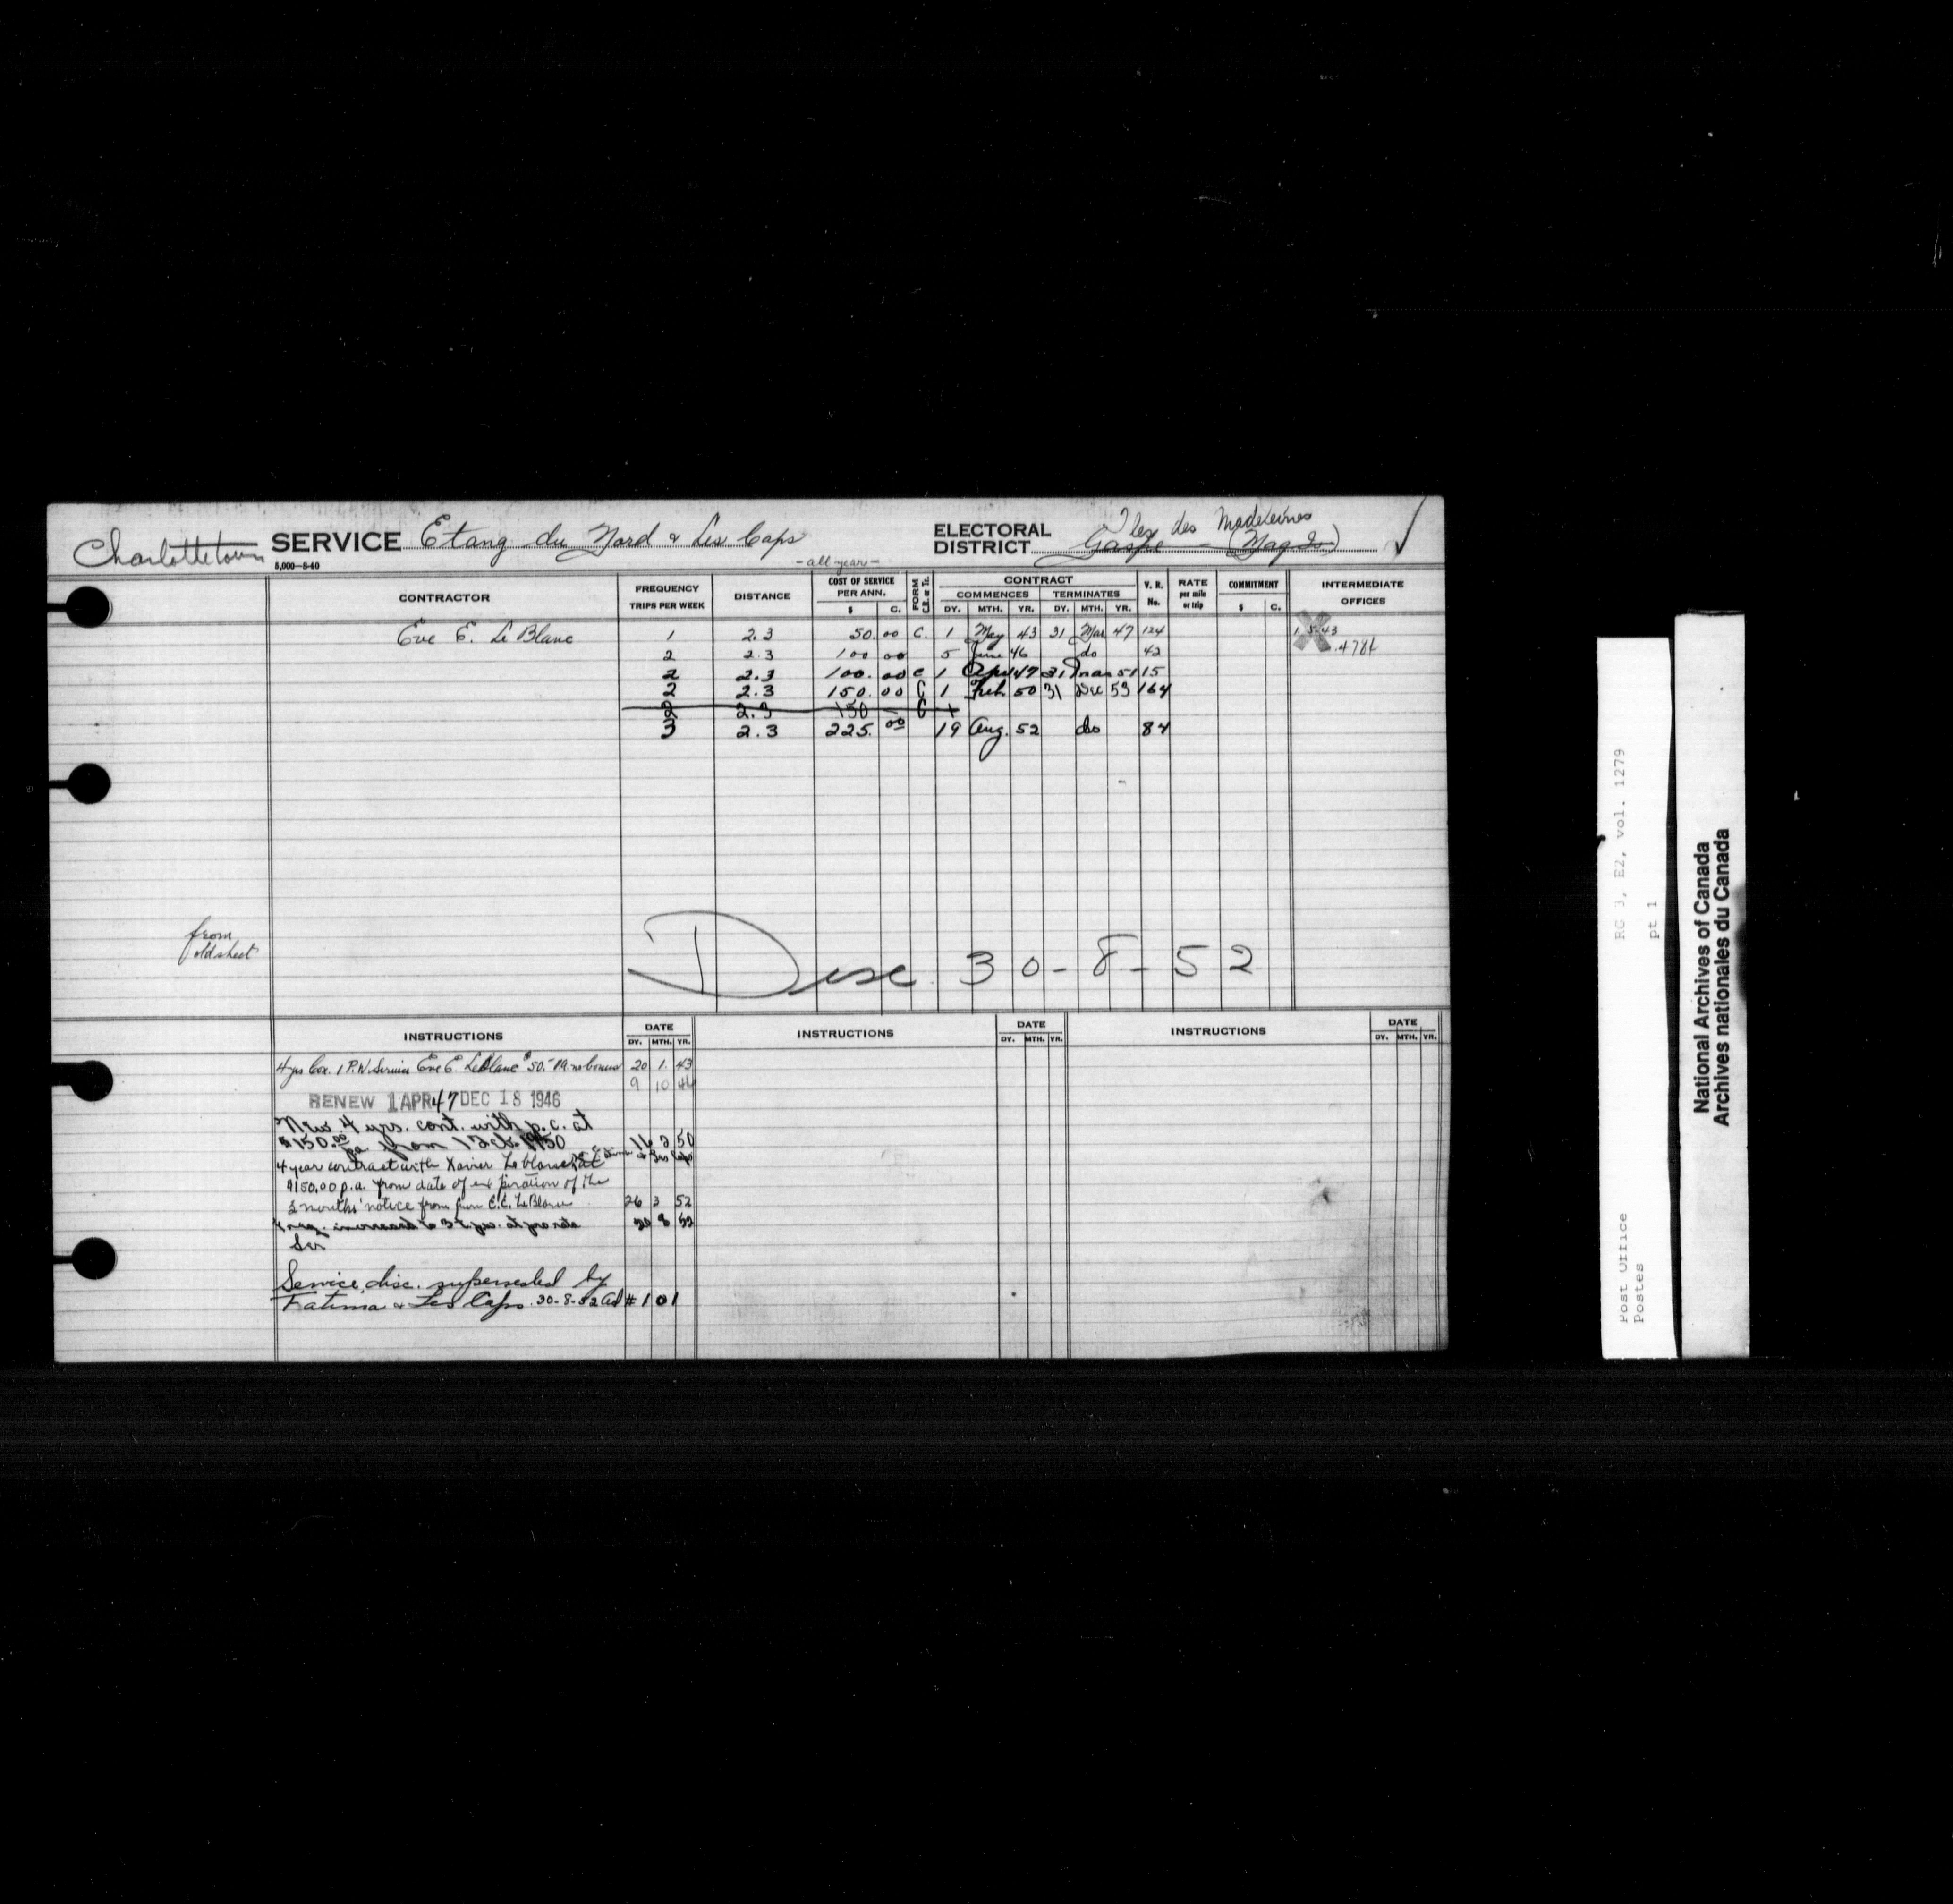 Charlottetown SERVICE Etang du Nord & Les Caps ELECTORAL DISTRICT Iles des Madeleines Gaspe (Mag Is)
5,000—8-40
-all year-
CONTRACTOR FREQUENCY TRIPS PER WEEK DISTANCE COST OF SERVICE PER ANN. $ C. FORM C.E. or Tr. CONTRACT COMMENCES DY. MTH. YR. TERMINATES DY. MTH. YR. V. R. No. RATE per mile or trip COMMITMENT $ C. INTERMEDIATE OFFICES
Eve E. Le Blanc 1 2.3 50.00 C. 1 May 43 31 Mar 47 124 1.5.43
2 2.3 100 00 5 June 46 do 42
2 2.3 100.00 C 1 Apr 47 31 Mar 51 15
2 2.3 150.00 C 1 Feb. 50 31 Dec 53 164
2 2.3 150 — C 1
3 2.3 225.00 19 Aug. 52 do 84
from
old sheet
Disc. 30-8-52
INSTRUCTIONS DATE DY. MTH. YR. INSTRUCTIONS DATE DY. MTH. YR. INSTRUCTIONS DATE DY. MTH. YR.
4 yrs Con. 1 P.W. Service Eve E. LeBlanc $50.- PA no bonus 20 1. 43
9 10 46
RENEW 1 APR 47 DEC 18 1946
New 4 yrs. cont. with p.c. at
$150.00 pa from 1 Feb. 1950 16 2 50
4 year contract with Xavier Le blanc at
$150.00 p.a. from date of expiration of the
3 months' notice from E.E. LeBlanc 26 3 52
Freq. increased to 3 t.p.w. at pro rata 20 8 52
Service disc. superseded by
Fatima & Les Caps. 30-8-52 ad #101
RG 3, E2, vol. 1279
pt 1
Post Office
Postes
National Archives of Canada
Archives nationales du Canada